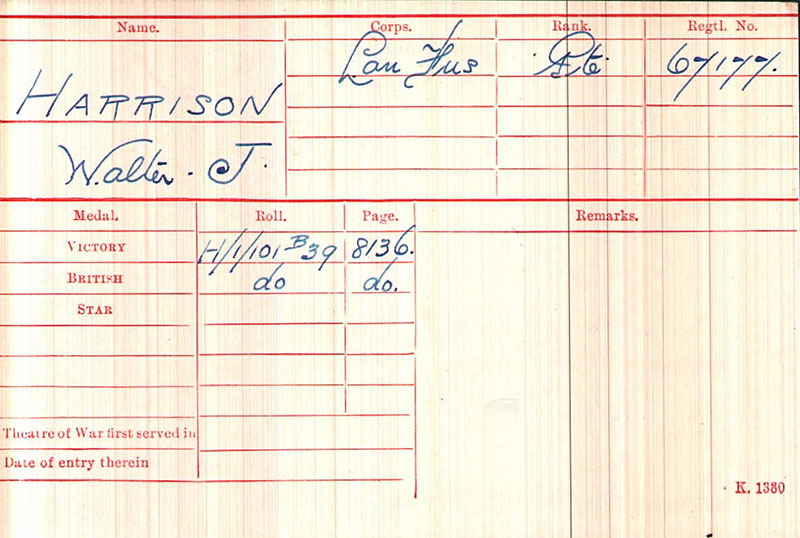 Name. Corps. Rank. Regtl. No.
HARRISON Lan Fus Pte. 67177.
Walter. J.
Medal. Roll. Page. Remarks.
VICTORY H/1/101 B39 8136.
BRITISH do do.
STAR
Theatre of War first served in
Date of entry therein
K. 1380